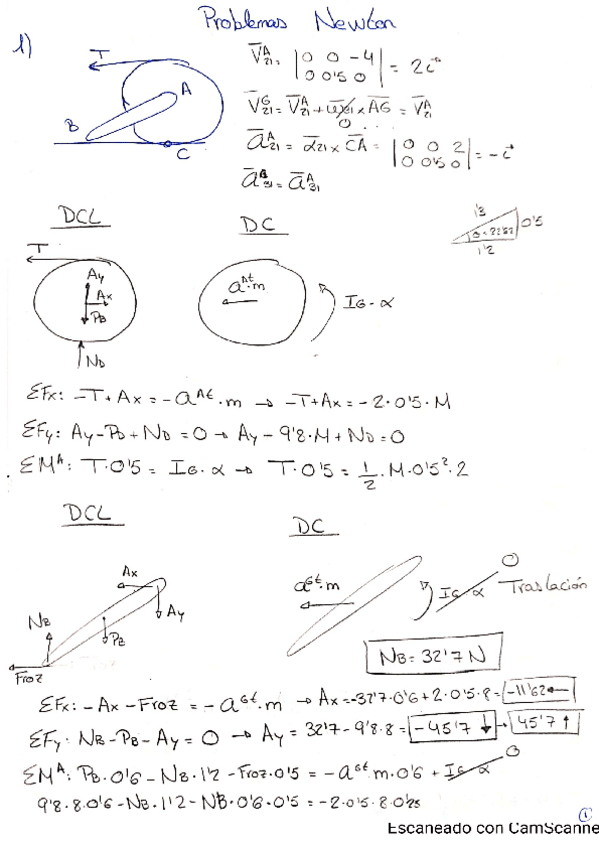 Problemas Newton
1)
T
A
B
C
V̄ᴬ₂₁ = |0 0 -4| = 2i⃗
0 0'5 0
V̄ᴳ₂₁ = V̄ᴬ₂₁ + ω̄₃₁ × AG = V̄ᴬ₂₁
0
āᴬ₂₁ = ᾱ₂₁ × CA = |0 0 2| = -i⃗
0 0'5 0
āᴮ₃₁ = āᴬ₃₁
DCL
DC
1'3
0'5
θ = 22'62
1'2
T
Ay
Ax
PD
ND
aᴬᵗ·m
IG·α
ΣFx: -T + Ax = -aᴬᵗ·m → -T + Ax = -2·0'5·M
ΣFy: Ay - PD + ND = 0 → Ay - 9'8·M + ND = 0
ΣMᴬ: T·0'5 = IG·α → T·0'5 = 1/2·M·0'5²·2
DCL
DC
Ax
Ay
NB
PB
Froz
aᴳᵗ·m
IG α
0
Traslación
NB = 32'7 N
ΣFx: -Ax - Froz = -aᴳᵗ·m → Ax = -32'7·0'6 + 2·0'5·8 = -11'62 ←
ΣFy: NB - PB - Ay = 0 → Ay = 32'7 - 9'8·8 = -45'7 ↓ → 45'7 ↑
ΣMᴬ: PB·0'6 - NB·1'2 - Froz·0'5 = -aᴳᵗ·m·0'6 + IG α
0
9'8·8·0'6 - NB·1'2 - NB·0'6·0'5 = -2·0'5·8·0'25
1
Escaneado con CamScanne